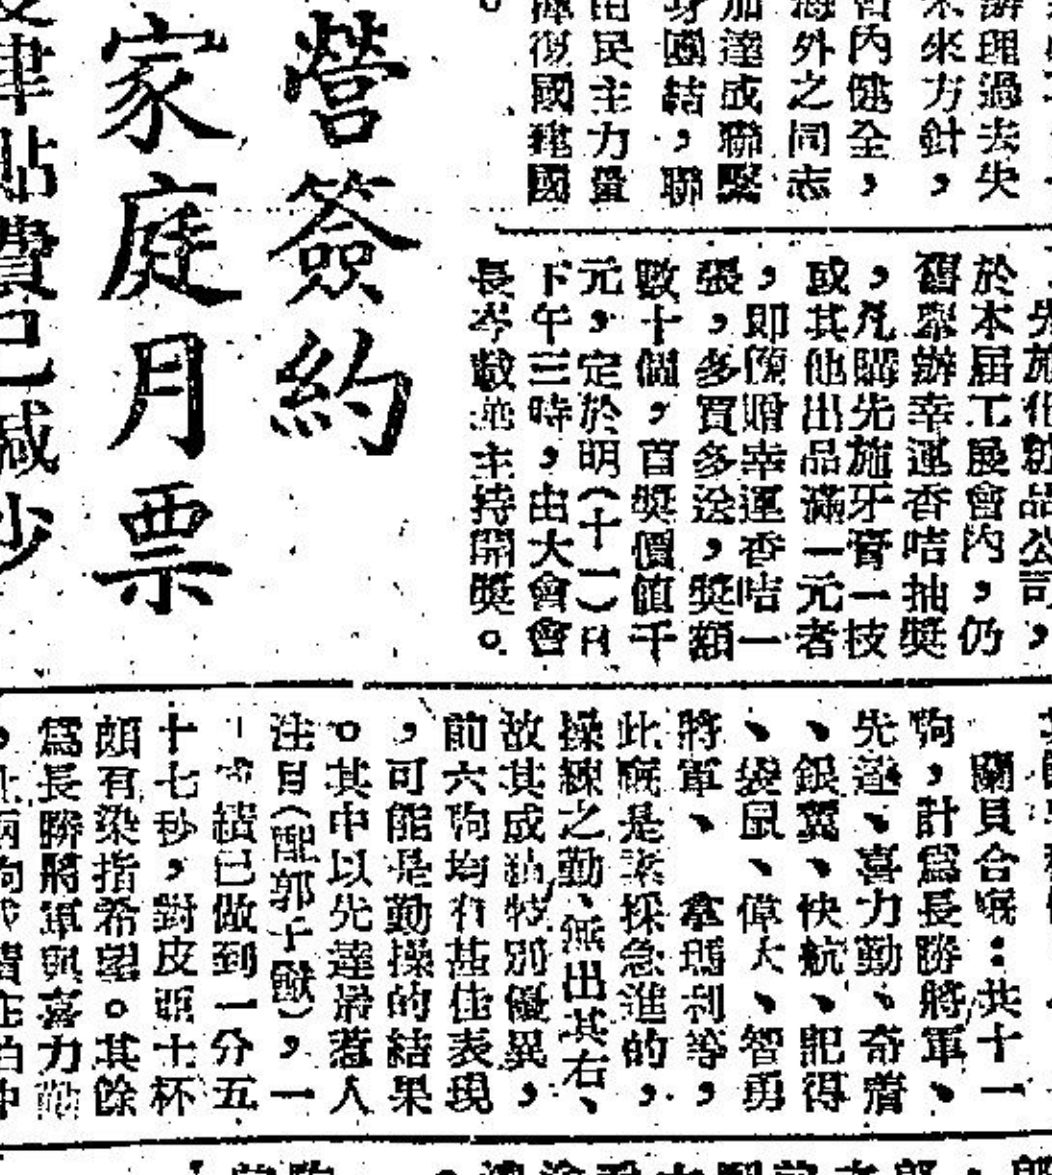 理過去失
來方針，
內健全，
海外之同志
加達成聯繫
身團結，聯
由民主力量
揮復國建國
。
先施化粧品公司，
於本届工展會內，仍
舊舉辦幸運香咭抽獎
，凡購先施牙膏一技
或其他出品滿一元者
，即贈幸運香咭一
張，多買多送，獎額
數十個，首獎價值千
元，定於明（十一）日
下午三時，由大會會
長岑載主持開獎。
營簽約
家庭月票
津貼費已減少
蘭貝合廐：共十一
駒，計爲長勝將軍、
先達、喜力勤、奇
、銀翼、快航、記得
、袋鼠、偉大、智勇
將軍、拿瑪利等，
此廐是素採急進的，
操練之勤、無出其右、
故其成績特別優異，
前六駒均有甚佳表現
，可能是勤操的結果
。其中以先達最惹人
注目（配郭子猷），一
成績已做到一分五
十七秒，對皮亞士杯
頗有染指希望。其餘
爲長勝將軍與喜力勤
，此兩駒成績在伯仲